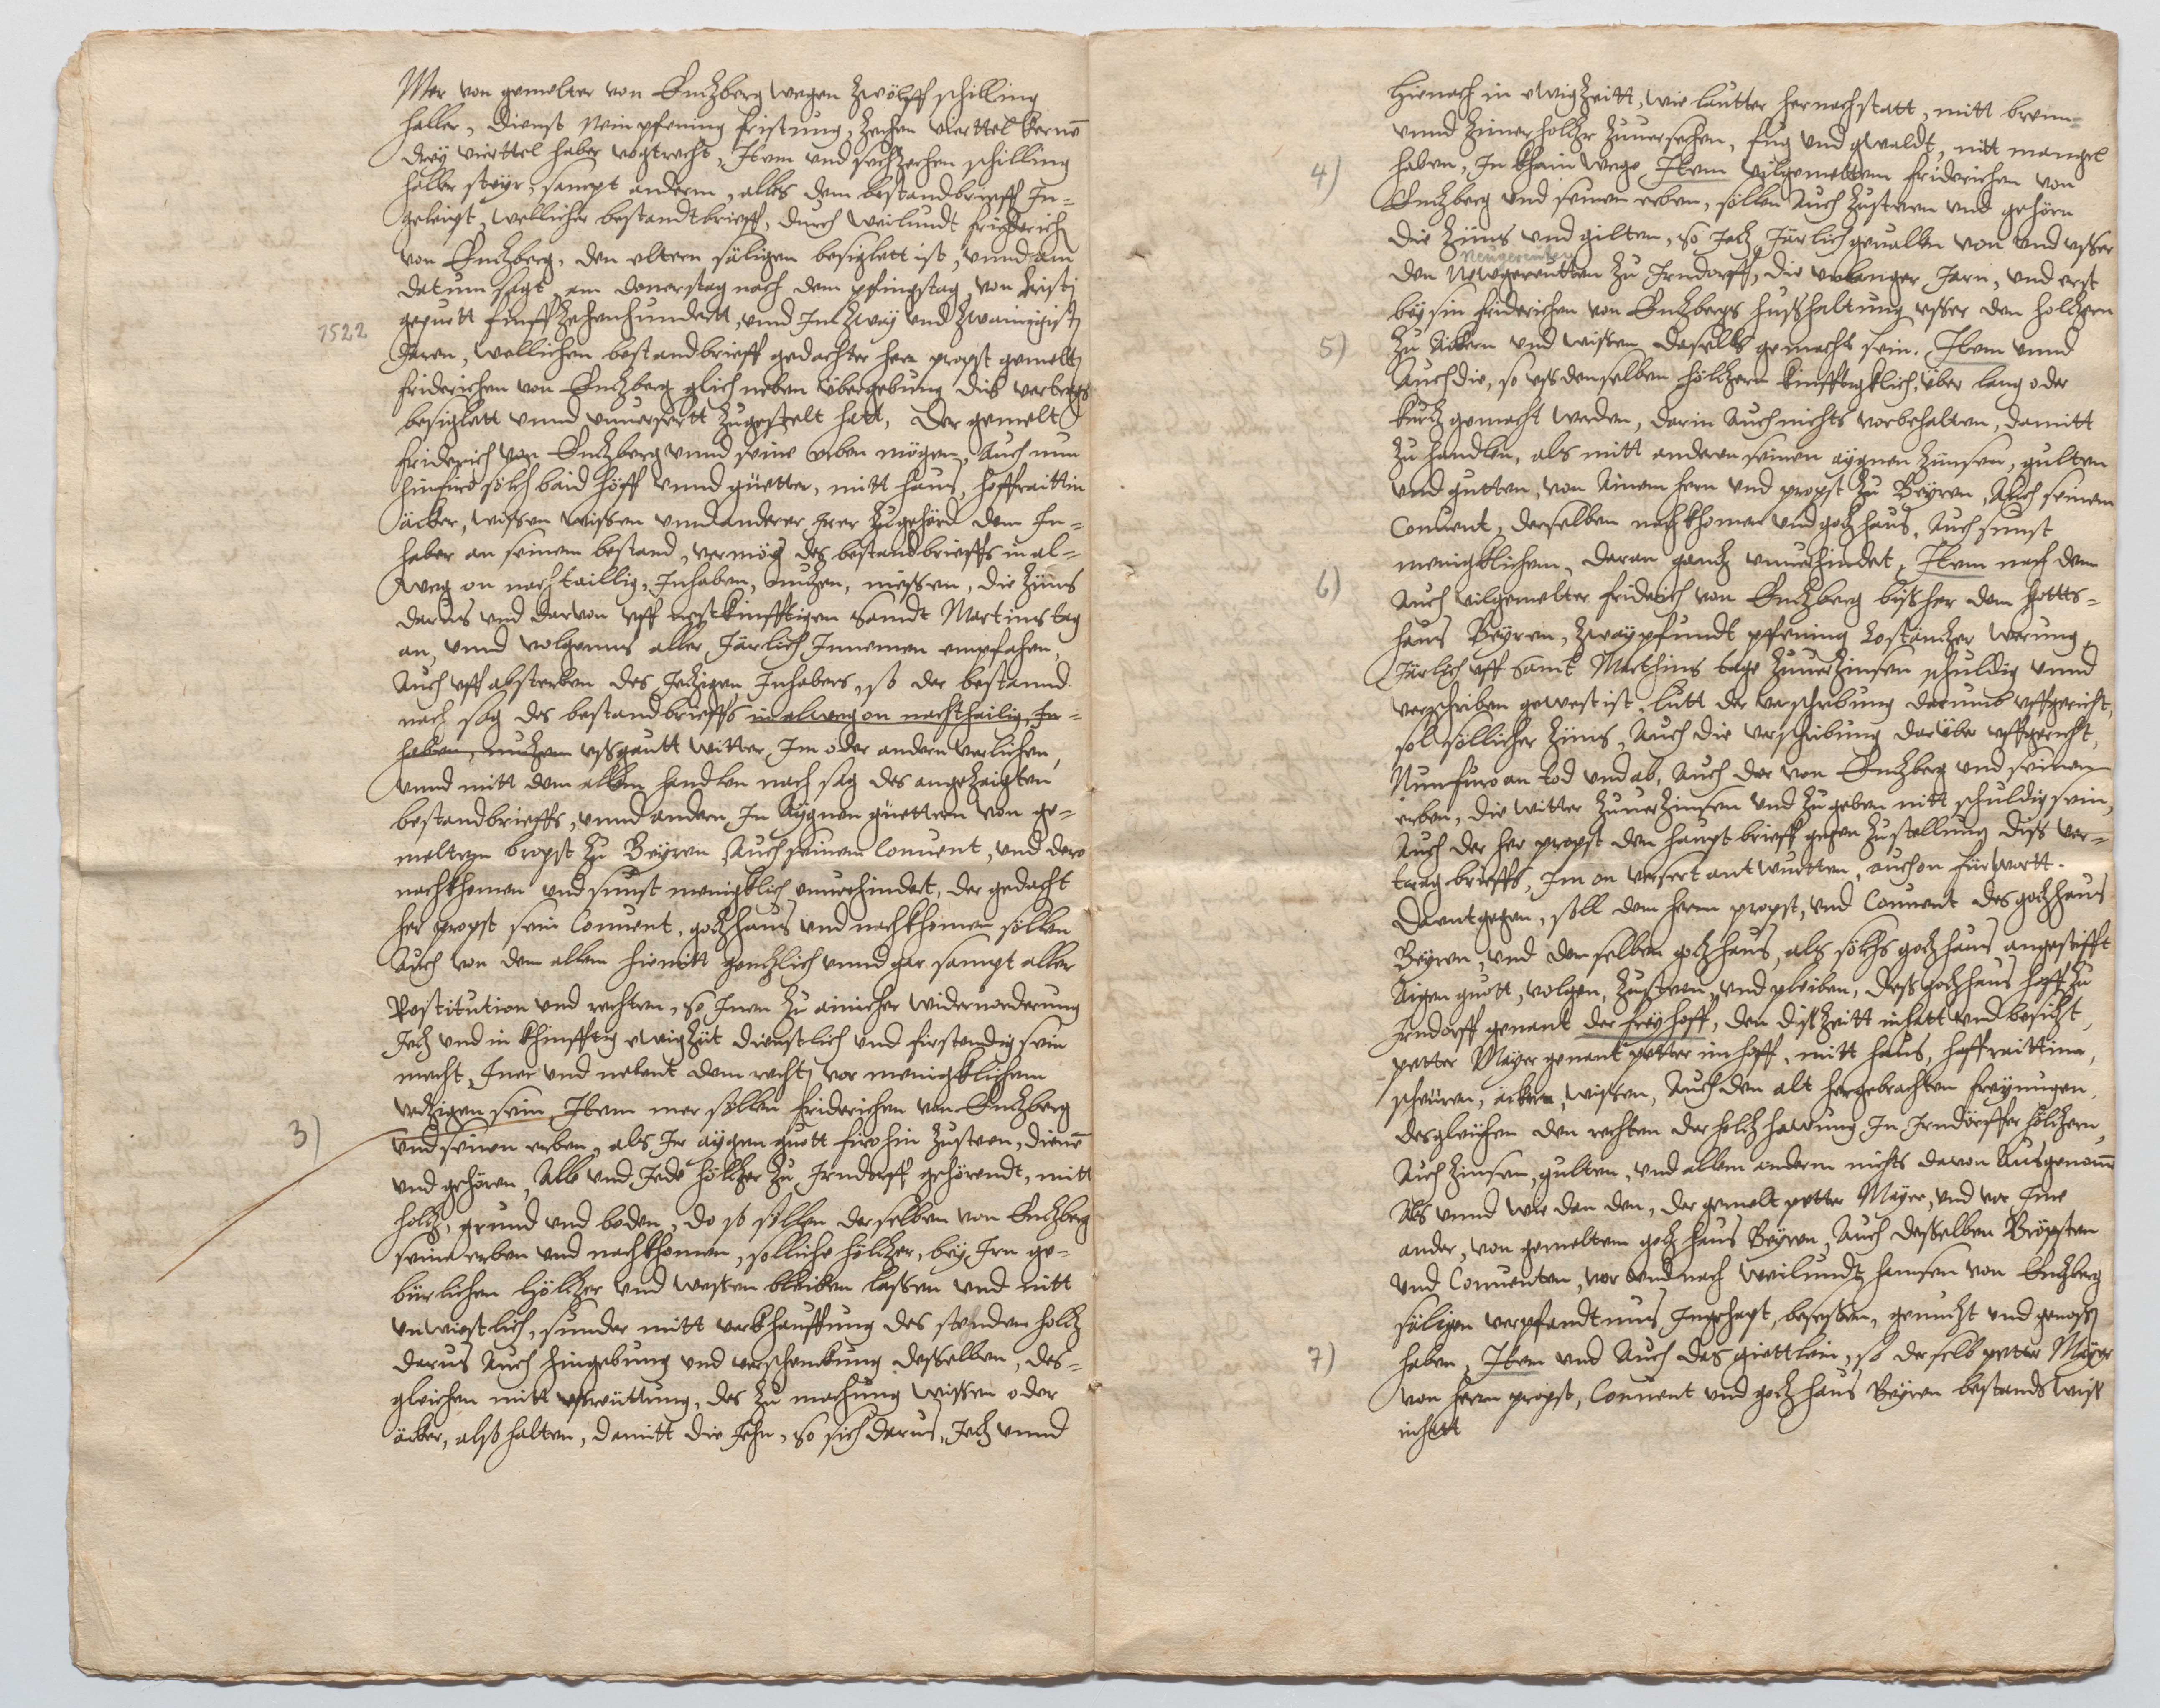 Mer von gemelter von Entzberg wegen zwölff schilling
haller, dienst weinpfening fristung, zehen viertel kernē
drey viertel haber vogtrecht, Item und sechzechen schilling
haller steyr, sampt anderm, alles dem bestandbrieff In-
geleipt, wellicher bestandtbrieff, durch weilundt friderich
von Entzberg, den eltern säligen besiglett ist, unnd am
datum sagt, am donerstag nach dem pfingstag, von Cristi
gepurtt funffzechenhundertt, und Im zway und zwaintzigist
1522
Jaren, wellichen bestandbrieff gedachter herr propst gemelt
friderichen von Entzberg glich neben übergebung dis vertrags
besiglett unnd unuersertt zugestelt hatt, der gemelt
friderich von Entzberg unnd seine erben mögen, Auch nun
hinfiro sölch baid höff unnd güetter, mitt haus, hoffraittin
äcker, wisen wissen unnd anderer Irer zugehörd dem In-
haber an seinem bestand, vermög des bestandbrieffs in al-
weg on nachtaillig, Inhaben, nutzen, niessen, die Zinns
darus und darvon uff nest kinfftigen Sandt Martinstag
an, unnd volgenns aller Järlich Innemen empfahen,
Auch uff absterben des Jetzigen Inhabers, so der bestannd
nach sag des bestandbrieffs in alweg on nachthailig In-
haben, nutzen ußgautt witter, Im oder andern verlichen,
unnd mitt dem allem handlen nach sag des angezaigten
bestandbrieffs, unnd andern Irn Aygnen güettern von ge-
meltem bropst zu Beyren Auch seinem Conuent, und dero
nachkhomen und sunst menigklich unuerhindert, der gedacht
her propst sein Conuent, gotzhaus und nachkhomen söllen
Auch von dem allem hiemitt gentzlich unnd gar sampt aller
Restitution und rechten, so Inen zu ainicher widervorderung
Jetz und in khinfftig ewigzüt dienstlich und firstendig sein
mecht, Inen und nebent dem recht vor menigklichem
vertzigen sein Item mer söllen friderichen von Entzberg
3)
und seinen erben, als Ir aygen guott firohin zusteen, dienē
und gehören, Alle und Jede höltzer zu Irndorff gehörendt, mitt
holtz, grund und boden, do so söllen derselben von Entzberg
seine erben und nachkhomen, solliche höltzer, bey Irn ge-
bürlichen höltzer und wessen bleiben lassen und nitt
unwiestlich, sunder mitt verkhauffung des stenden holtz
darus Auch hingebung und verschenckung desselben, des-
gleichen mitt ußrüttung, des zu machung wissen oder
äcker, alß halten, damitt die Jehn, so sich darus, Jetz unnd
hienach in ewigzeitt, wie lautter hernachstatt, mitt brenn-
unnd zimerholtz zuuersechen, fug und gwaldt, nitt mangel
haben, In khain wege, Item vilgemeltem friderichen von
4)
Entzberg und seinen erben, söllen Auch zusteen und gehörn
die Zinns und gilten, so Jetz Järlich geuallen von und usser
Neugereuten
den Newgereutten zu Irndorff, die unlanger Jarn, und erst
bey sin friderichen von Entzbergs hußhaltung usser den höltzern
zu Ackern und wissen daselbs gemacht sein. Item unnd
5)
Auch die, so uß denselben höltzern kinfftigklich, über lang oder
kurtz gemacht werden, darin Auch nichts vorbehalten, damitt
zu handlen, als mitt anderen seinen aygnen Zinsen, gulten
und gutten, von Ainem hern und propst zu Beyren, Auch seinem
Conuent, derselben nachkhomen und gotzhaus, Auch sunst
menigklichem, daran gantz unuerhindert, Item nach dem
6)
Auch vilgemelter friderich von Entzberg bißher dem Gotts-
haus Beyren, zway pfundt pfening Costantzer werung,
Järlich uff sant Marthins tage zuuerzinsen schuldig unnd
verschriben gewest ist, lutt der verschribung darumb uffgericht,
sol söllicher Zinns, Auch die verschribung darüber uffgericht,
Nunfuro an tod und ab, Auch der von Entzberg und seinen
erben, die witter zuuerzinsen und zu geben nitt schuldig sein,
Auch der her propst den haupt brieff gegen zustellung diß ver-
trag brieffs, Im on versert antwurtten, auch on fürwortt.
Darentgegen, soll dem herrn propst, und Conuent des gotzhaus
Beyren, und demselben gotzhaus, als sölchs gotzhaus angestifft
Aigen guott, volgen, zusteen, und pleiben, deß gotzhaus hoff zu
Irndorff genant der freyhoff, den diß zeitt inhatt und besitzt,
petter Mayer genant petter im hoff, mitt haus, hoffraittina,
scheuren, ackern, wissen, Auch den alt hergebrachten freyungen,
desgleichen den rechten der holtz hawung, In Irndörffer höltzern,
Auch Zinsen, gulten, und allem anderm nichts davon Ausgenomē
Als unnd wie dan den, der gemelt petter Mayer, und vor Ime
ander, von gemeltem gotzhaus Beyren, Auch desselben Bröpsten
und Conuenten, vor und nach weilundt hansen von Entzberg
säligen verpfandtnus Ingehapt, besessen, genutzt und genossen
haben, Item und Auch das giettlein, so derselb petter Mayer
7)
von herrn propst, Conuent und gotzhaus Beyren bestandswiß
inhatt